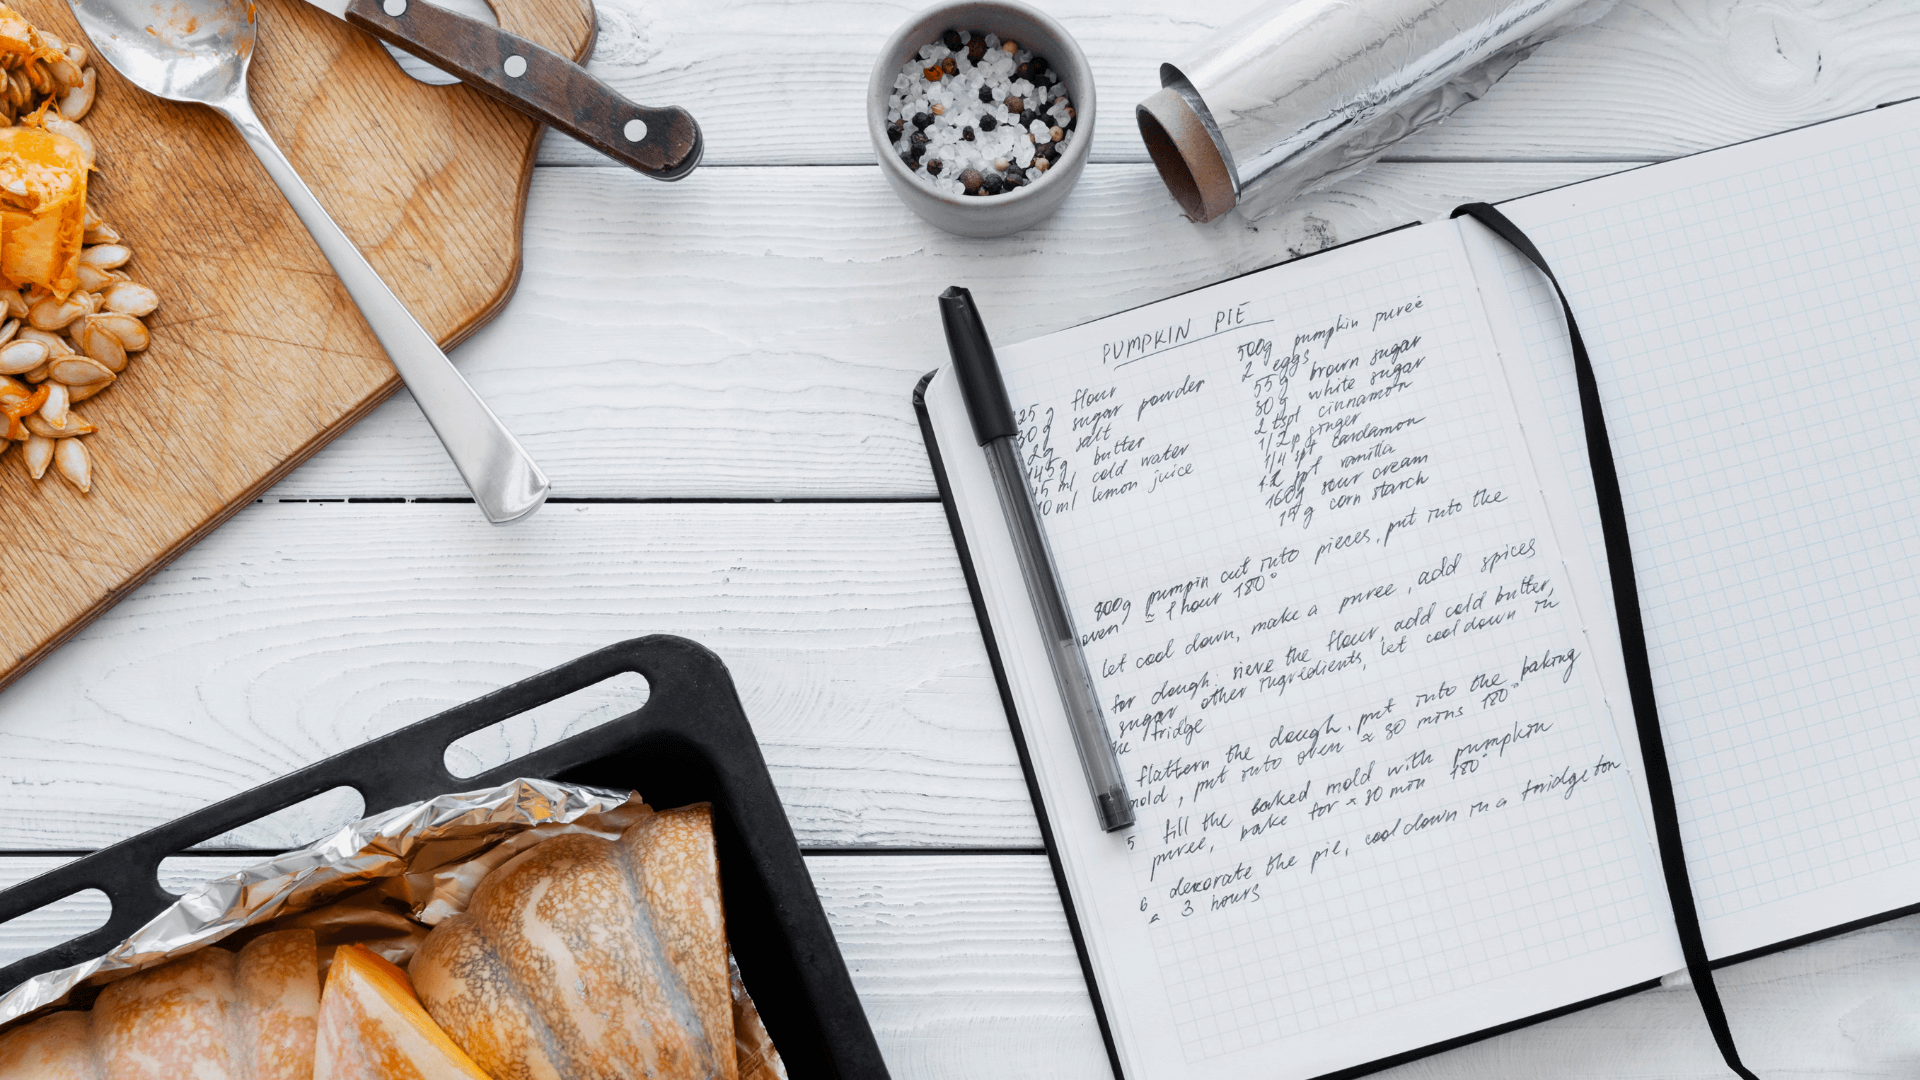 PUMPKIN PIE
25 g flour
30 g sugar powder
2g salt
145g butter
15 ml cold water
10 ml lemon juice
500g pumpkin pureé
2 eggs
55 g brown sugar
30 g white sugar
2 tspt cinnamon
1/2 p ginger
1/4 spt cardamon
spt vanilla
160g sour cream
15 g corn starch
800g pumpin cut into pieces, put into the
oven ≈ 1 hour 180°
let cool down, make a puree, add spices
for dough: sieve the flour, add cold butter,
sugar other ingredients, let cool down in
fridge
flattern the dough, put into the baking
mold, put into oven ≈ 30 mins 180°
5 fill the baked mold with pumpkin
puree, bake for ≈ 30 min 180°
6 decorate the pie, cool down in a fridge for
≈ 3 hours